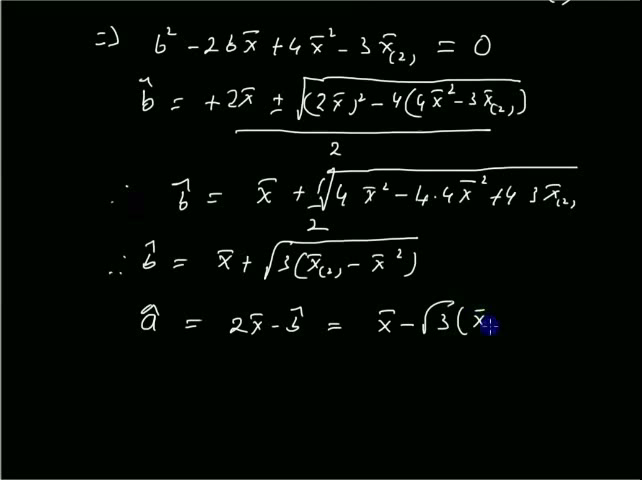 => b² - 2b x̄ + 4x̄² - 3x̄₍₂₎ = 0
b̂ = +2x̄ ± √((2x̄)² - 4(4x̄² - 3x̄₍₂₎)) / 2
∴ b̂ = x̄ + 1/2 √(4x̄² - 4·4x̄² + 4 3x̄₍₂₎)
∴ b̂ = x̄ + √(3(x̄₍₂₎ - x̄²))
â = 2x̄ - b̂ = x̄ - √3(x̄